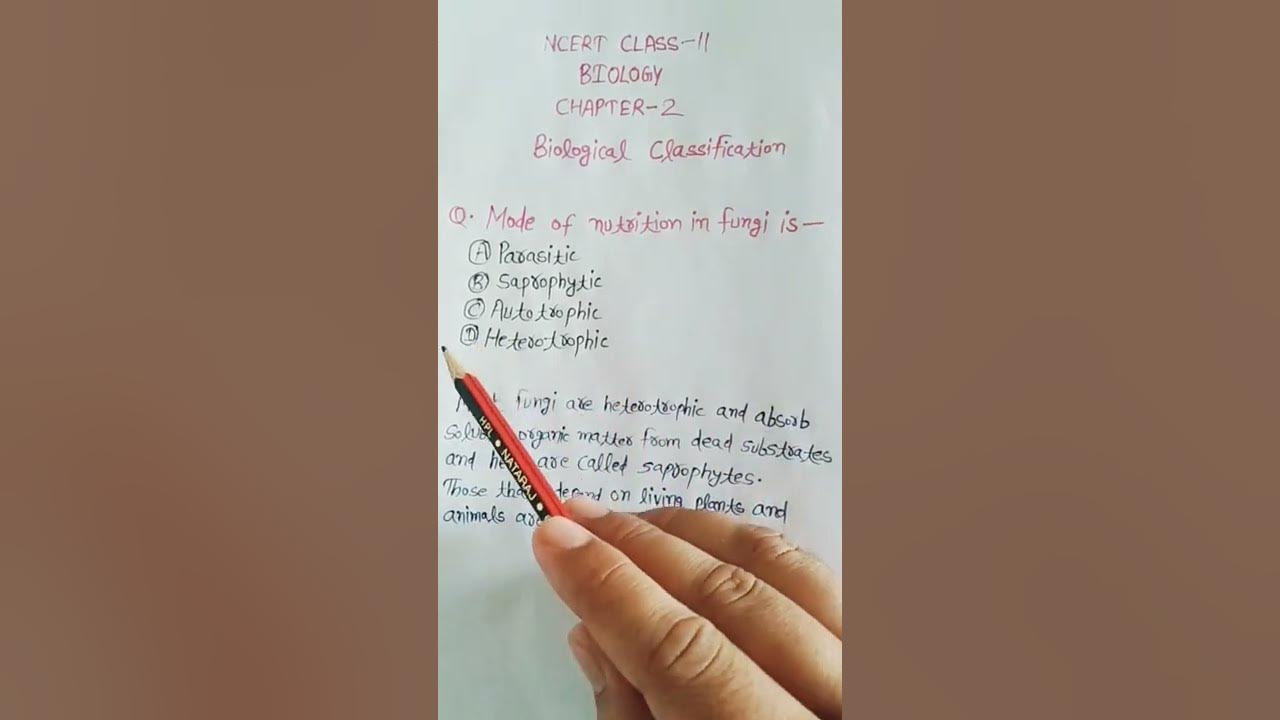 NCERT CLASS-11
BIOLOGY
CHAPTER-2
Biological Classification
Q. Mode of nutrition in fungi is—
(A) Parasitic
(B) Saprophytic
(C) Autotrophic
(D) Heterotrophic
fungi are heterotrophic and absorb
organic matter from dead substrates
and are called saprophytes.
Those on living plants and
animals
HPL • NATARAJ •